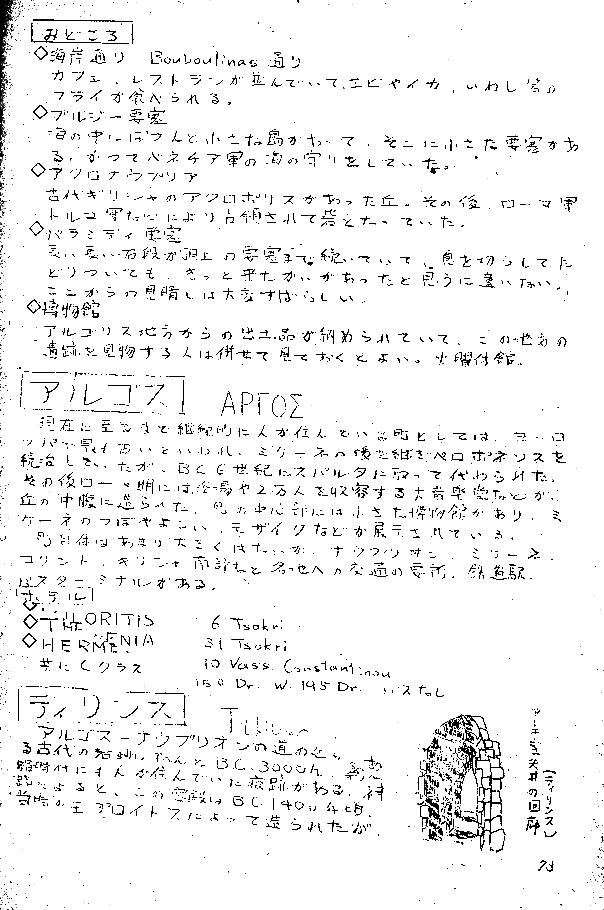 みどころ
◇海岸通り Bouboulinas 通り
カフェ、レストランが並んでいて、エビやイカ、いわし等の
フライが食べられる。
◇ブルジー要塞
海の中にぽつんと小さな島があって、そこに小さな要塞があ
る。かつてベネチア軍の海の守りをしていた。
◇アクロナウプリア
古代ギリシャのアクロポリスがあった丘。その後、ローマ軍
トルコ軍などにより占領されて砦となっていた。
◇パラミディ要塞
長い長い石段が頂上の要塞まで続いていて、息を切らしてた
どりついても、きっと来たかいがあったと思うに違いない。
ここからの見晴しは大変すばらしい。
◇博物館
アルゴリス地方からの出土品が納められていて、この地方の
遺跡を見物する人は併せて見ておくとよい。火曜休館。
アルゴス ΑΡΓΟΣ
現在に至るまで継続的に人が住んでいる町としては、ヨーロ
ッパで最も古いといわれ、ミケーネの後を継ぎペロポネソスを
統治していたが、BC6世紀にスパルタに取って代わられた。
その後ローマ期には浴場や2万人を収容する大音楽堂などが、
丘の中腹に造られた。町の中心部には小さな博物館があり、ミ
ケーネのつぼやよろい、モザイクなどが展示されている。
町自体はあまり大きくはないが、ナウプリオン、ミケーネ、
コリント、ギリシャ南部など各地への交通の要所。鉄道駅、
バスターミナルがある。
ホテル
◇THEORITIS 6 Tsokri
◇HERMES 31 Tsokri
10 Vass. Constantinou
共にCクラス
150 Dr. W. 195 Dr. バスなし
ティリンス
アルゴス－ナウプリオンの道の近く
る古代の
B.C. 3000
時代に人が住んでいた痕跡がある。神
話によると、この要塞はBC1400年頃、
当時の王プロイトスによって造られたが、
アーチ型天井の回廊
（ティリンス）
73